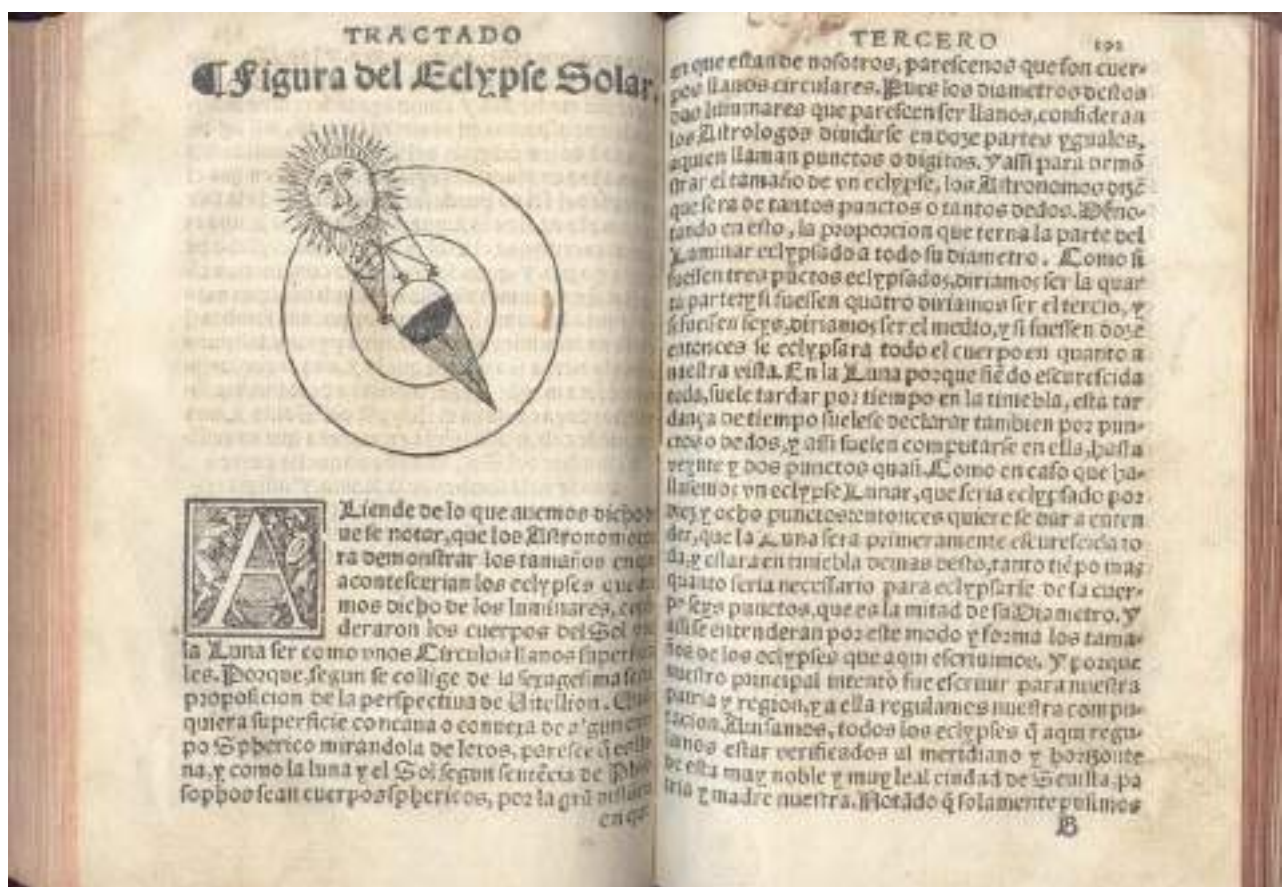 TRACTADO
¶ Figura del Eclypse Solar.
Lliende de lo que auemos dicho
uese notar, que los Astronomos
ra demonstrar los tamaños en q̃
acontescerian los eclypses que
mos dicho de los luminares,
deraron los cuerpos del Sol
la Luna ser como vnos Circulos llanos
les. Porque, segun se collige de la sexagesima
proposicion de la perspectiua de Uitellion.
quiera superficie concaua o conuexa de algun
po Spherico mirandola de lexos, paresce q̃
na, y como la luna y el Sol segun sentẽcia de
sophos sean cuerpos sphericos, por la grã
en que
TERCERO
en que estan de nosotros, parescenos que son cuer-
pos llanos circulares. Pues los diametros destos
dos luminares que parescen ser llanos, consideran
los Astrologos diuidirse en doze partes yguales,
a quien llaman punctos o digitos. Y assi para demõ
strar el tamaño de vn eclypse, los Astronomos dizẽ
que sera de tantos punctos o tantos dedos. Deno-
tando en esto, la proporcion que terna la parte del
Luminar eclypsado a todo su diametro. Como si
fuessen tres pũctos eclypsados, diriamos ser la quar
ta parte: y si fuessen quatro diriamos ser el tercio, y
si fuessen seys, diriamos ser el medio, y si fuessen doze
entonces se eclypsará todo el cuerpo en quanto a
nuestra vista. En la Luna porque siẽdo escurescida
toda, suele tardar por tiempo en la tiniebla, esta tar
dança de tiempo suelese declarar tambien por pun-
ctos o dedos, y assi suelen computarse en ella, hasta
veynte y dos punctos quasi. Como en caso que ha-
llassemos vn eclypse Lunar, que seria eclypsado por
diez y ocho punctos: entonces quiere se dar a enten
der, que la Luna sera primeramente escurescida to
da, y estara en tiniebla demas desto, tanto tiẽpo mas
quanto seria necessario para eclypsarse de su cuer-
po seys punctos, que es la mitad de su Diametro. Y
assi se entenderan por este modo y forma los tama-
ños de los eclypses que aqui escriuimos. Y porque
nuestro principal intento fue escreuir para nuestra
patria y region, y a ella regulamos nuestra compu-
tacion. Auisamos, todos los eclypses q̃ aqui regu-
lamos estar verificados al meridiano y horizonte
de esta muy noble y muy leal ciudad de Seuilla, pa
tria y madre nuestra. Notãdo q̃ solamente pusimos
B